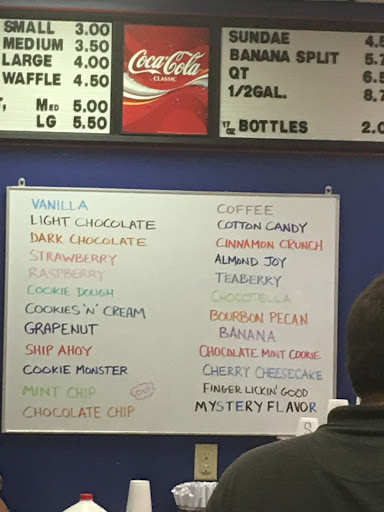 SMALL 3.00
MEDIUM 3.50
LARGE 4.00
WAFFLE 4.50
MED 5.00
LG 5.50
Coca-Cola
CLASSIC
SUNDAE 4.5
BANANA SPLIT 5.7
QT 6.5
1/2GAL. 8.7
17 OZ BOTTLES 2.0
VANILLA
LIGHT CHOCOLATE
DARK CHOCOLATE
STRAWBERRY
RASPBERRY
COOKIE DOUGH
COOKIES 'N' CREAM
GRAPENUT
SHIP AHOY
COOKIE MONSTER
MINT CHIP OUT
CHOCOLATE CHIP
COFFEE
COTTON CANDY
CINNAMON CRUNCH
ALMOND JOY
TEABERRY
CHOCOTELLA
BOURBON PECAN
BANANA
CHOCOLATE MINT COOKIE
CHERRY CHEESECAKE
FINGER LICKIN' GOOD
MYSTERY FLAVOR